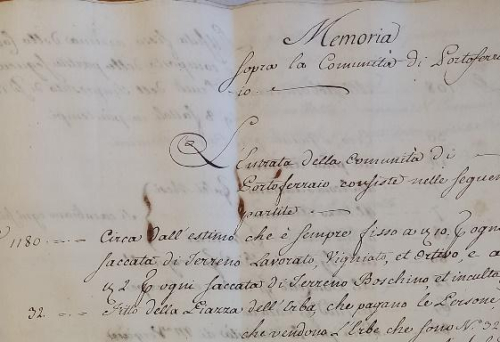 Memoria
sopra la Comunità di Portoferra
io
L'Entrata della Comunità di
Portoferraio consiste nelle seguen
partite
1180 Circa dall'estimo che è sempre fisso a 10. ogni
saccata di Terreno Lavorato, Vigniato, et Ortivo, e a
2 ogni saccata di Terreno Boschino, et inculta
32 Fitto della Piazza dell'Erba, che pagano le Persone
che vendono L'Erbe che sono N.° 32